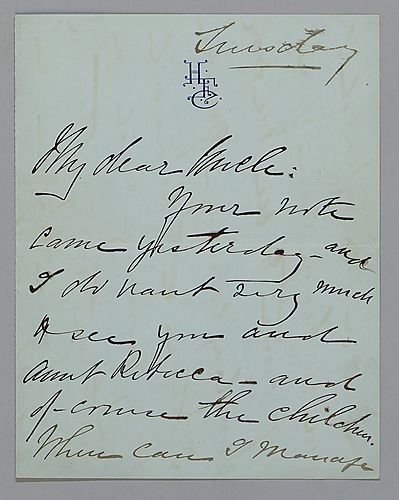 Tuesday
H F C
My dear Uncle:
Your note
came yesterday - and
I do want very much
to see you and
Aunt Rebecca - and
of - course the children.
When can I manage